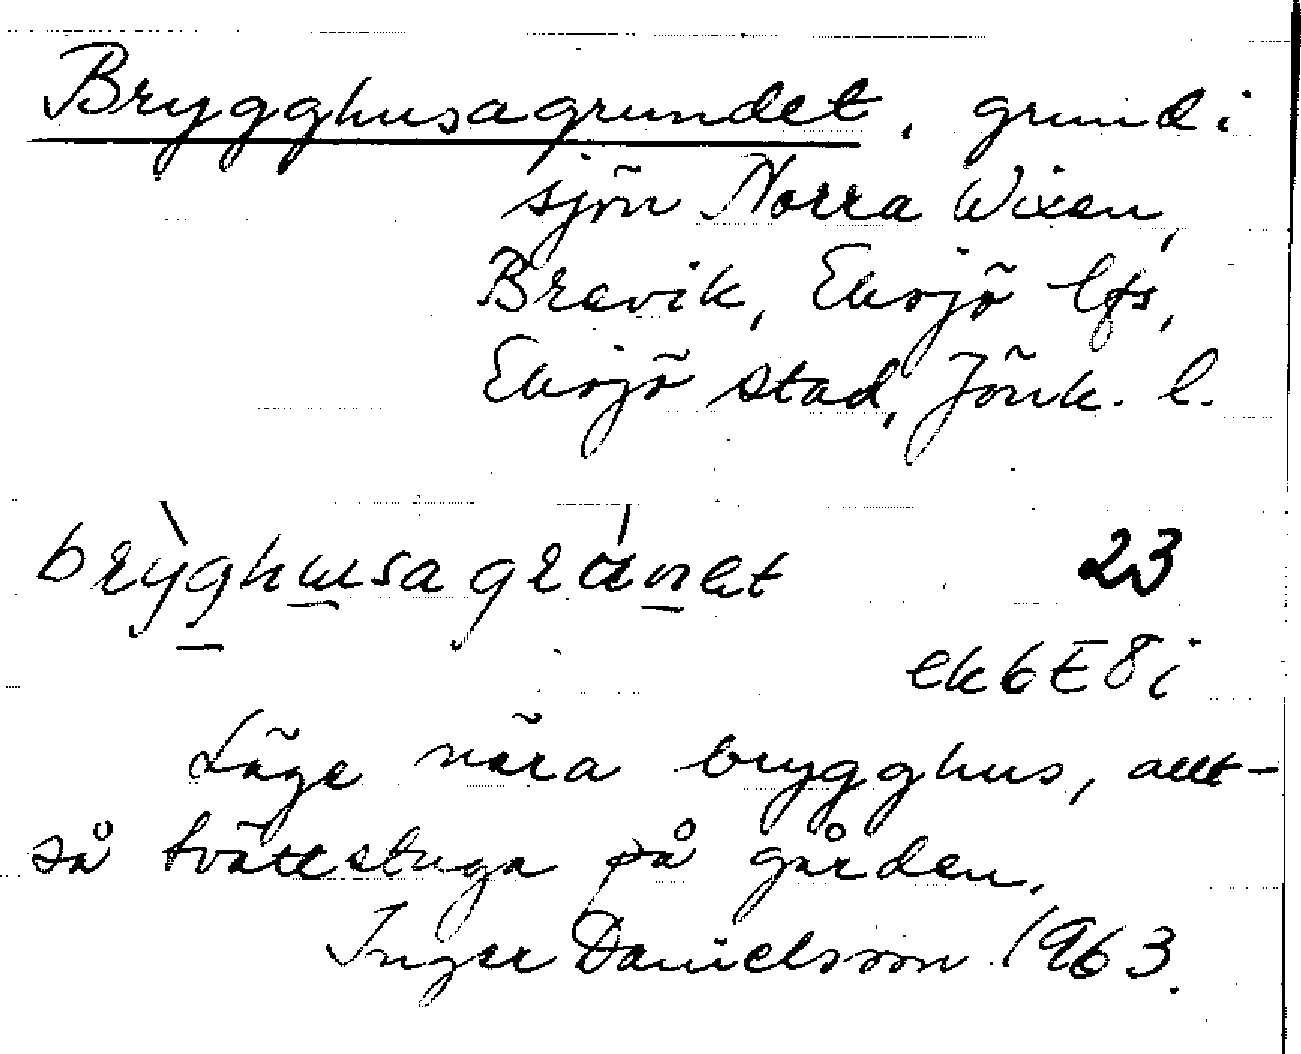 Brygghusagrundet, grund i
sjön Norra Wixen,
Bravik, Eksjö lfs,
Eksjö stad, Jönk. l.
brỳghusagránet 23
ek 6 E 8 i
Läge nära brygghus, allt-
så tvättstuga på gården.
Inger Danielsson 1963.